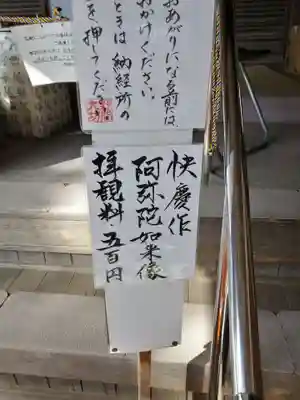 おあがりになる前には、
おかけください。
ときは納経所の
を押してくださ
快慶作
阿弥陀如来像
拝観料・五百円